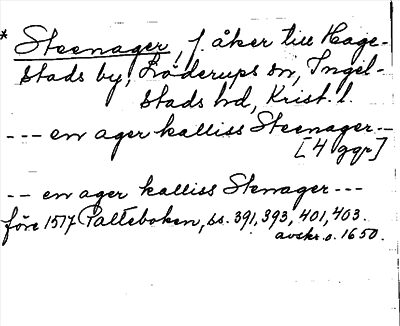 * Steenager, f. åker till Hage-
stads by, Löderups sn, Ingel-
stads hd, Krist. l.
--- en ager kalliss Steenager --
[4 ggr]
-- en ager kalliss Stenager ---
före 1517 Palteboken, ss. 391, 393, 401, 403.
avskr. o. 1650.